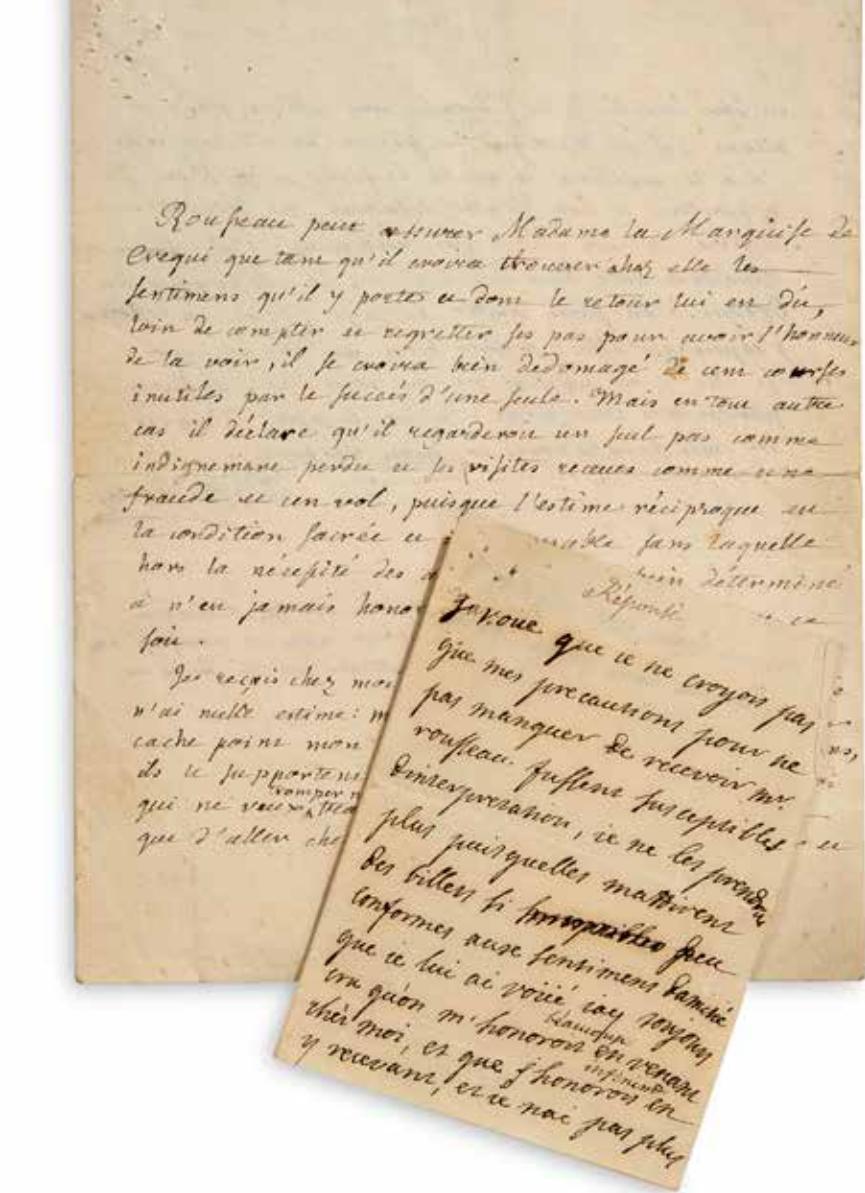 Rousseau peut assurer Madame la Marquise de
Crequi que tant qu'il croira trouver chez elle les
sentimens qu'il y porte, et dont le retour lui est dû,
loin de compter et regretter ses pas pour avoir l'honneur
de la voir, il se croira bien dédomagé de cent courses
inutiles par le succès d'une seule. Mais en tout autre
cas il déclare qu'il regarderoit un seul pas comme
indignement perdu et les visites reçues comme une
fraude et un vol, puisque l'estime réciproque est
la condition sacrée et sans laquelle
hors la nécessité des bien déterminé
à n'en jamais
soi.
Je reçois chez moi
n'ai nulle estime:
cache point mon
ils le supportent
rompre
qui ne veux
que d'aller
Réponse
J'avoue que ie ne croyois pas
que mes precautions pour ne
pas manquer de recevoir mr.
rousseau. fussent susceptibles
dinterpretation, ie ne les prendrai
plus puisquelles mattirent
des billets si peu
conformes aux sentimens damitié
que ie lui ai voüé iay toujours
cru qu'on m'honoroit en venant
beaucoup
chés moi, et que j'honorois en
infiniment
y recevant, et ie nai pas plus